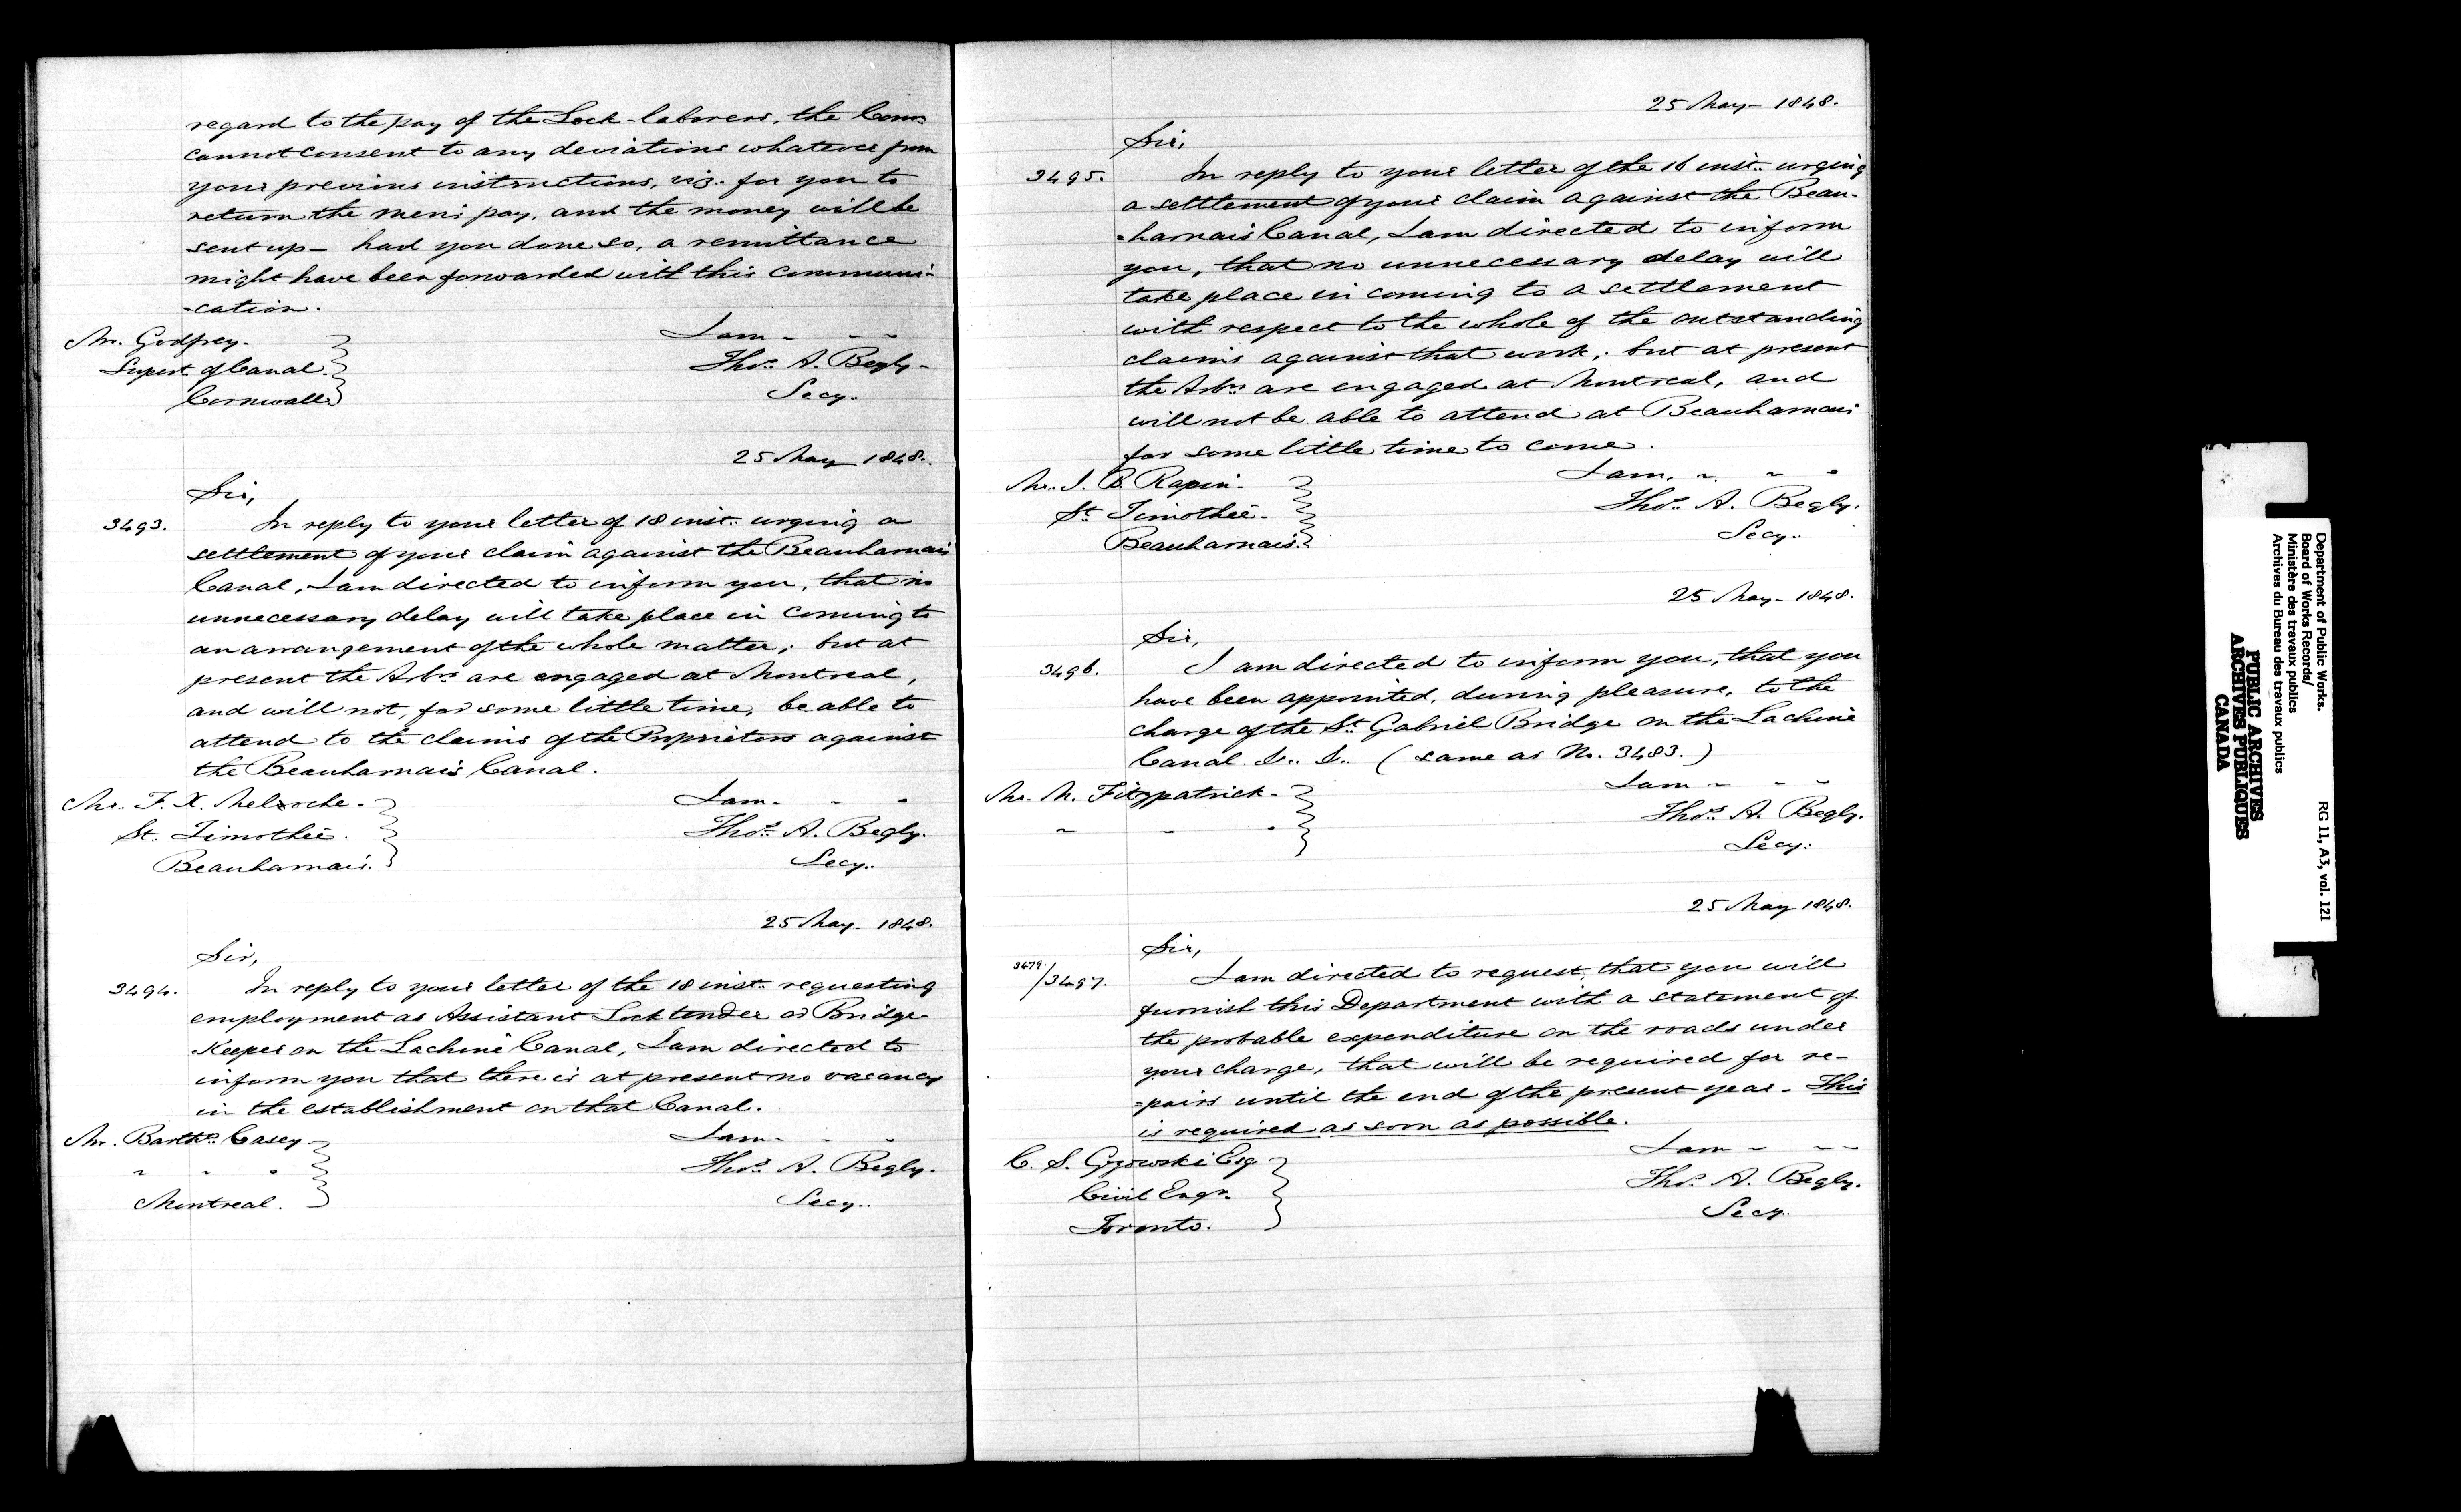 regard to the pay of the Lock-laborers, the Comrs
cannot consent to any deviations whatever from
your previous instructions, viz. for you to
return the men's pay, and the money will be
sent up - had you done so, a remittance
might have been forwarded with this communi-
-cation.
I am - - -
Mr. Godfrey.
Thos. A. Begly -
Supert. of Canal.
Secy.
Cornwall.
25 May 1848.
Sir,
3493. In reply to your letter of 18 inst. urging a
settlement of your claim against the Beauharnais
Canal, I am directed to inform you, that no
unnecessary delay will take place in coming to
an arrangement of the whole matter; but at
present the Arbrs are engaged at Montreal,
and will not, for some little time, be able to
attend to the claims of the Proprietors against
the Beauharnais Canal.
Mr. F. X. Meloche.
I am - - -
St. Timothée.
Thos. A. Begly.
Beauharnais.
Secy.
25 May - 1848.
Sir,
3494. In reply to your letter of the 18 inst. requesting
employment as Assistant Lock tender or Bridge-
Keeper on the Lachine Canal, I am directed to
inform you that there is at present no vacancy
in the establishment on that Canal.
Mr. Bartho. Casey
I am - - -
" " "
Thos. A. Begly.
Montreal.
Secy.
25 May - 1848.
Sir,
3495. In reply to your letter of the 16 inst. urging
a settlement of your claim against the Beau-
-harnais Canal, I am directed to inform
you, that no unnecessary delay will
take place in coming to a settlement
with respect to the whole of the outstanding
claims against that work; but at present
the Arbrs are engaged at Montreal, and
will not be able to attend at Beauharnais
for some little time to come.
I am, " " "
Mr. J. B. Rapin.
Thos. A. Begly.
St. Timothée.
Secy.
Beauharnais.
25 May - 1848.
Sir,
3496. I am directed to inform you, that you
have been appointed, during pleasure, to the
charge of the St. Gabriel Bridge on the Lachine
Canal. &. &. (same as No. 3483.)
I am - - -
Mr. M. Fitzpatrick.
Thos. A. Begly.
" - "
Secy.
25 May 1848.
Sir,
3479/3497. I am directed to request, that you will
furnish this Department with a statement of
the probable expenditure on the roads under
your charge, that will be required for re-
-pairs until the end of the present year - This
is required as soon as possible.
I am - - -
C. S. Gzowski Esq
Thos. A. Begly.
Civil Engr.
Secy.
Toronto.
Department of Public Works.
Board of Works Records/
Ministère des travaux publics
Archives du Bureau des travaux publics
RG 11, A3, vol. 121
PUBLIC ARCHIVES
ARCHIVES PUBLIQUES
CANADA